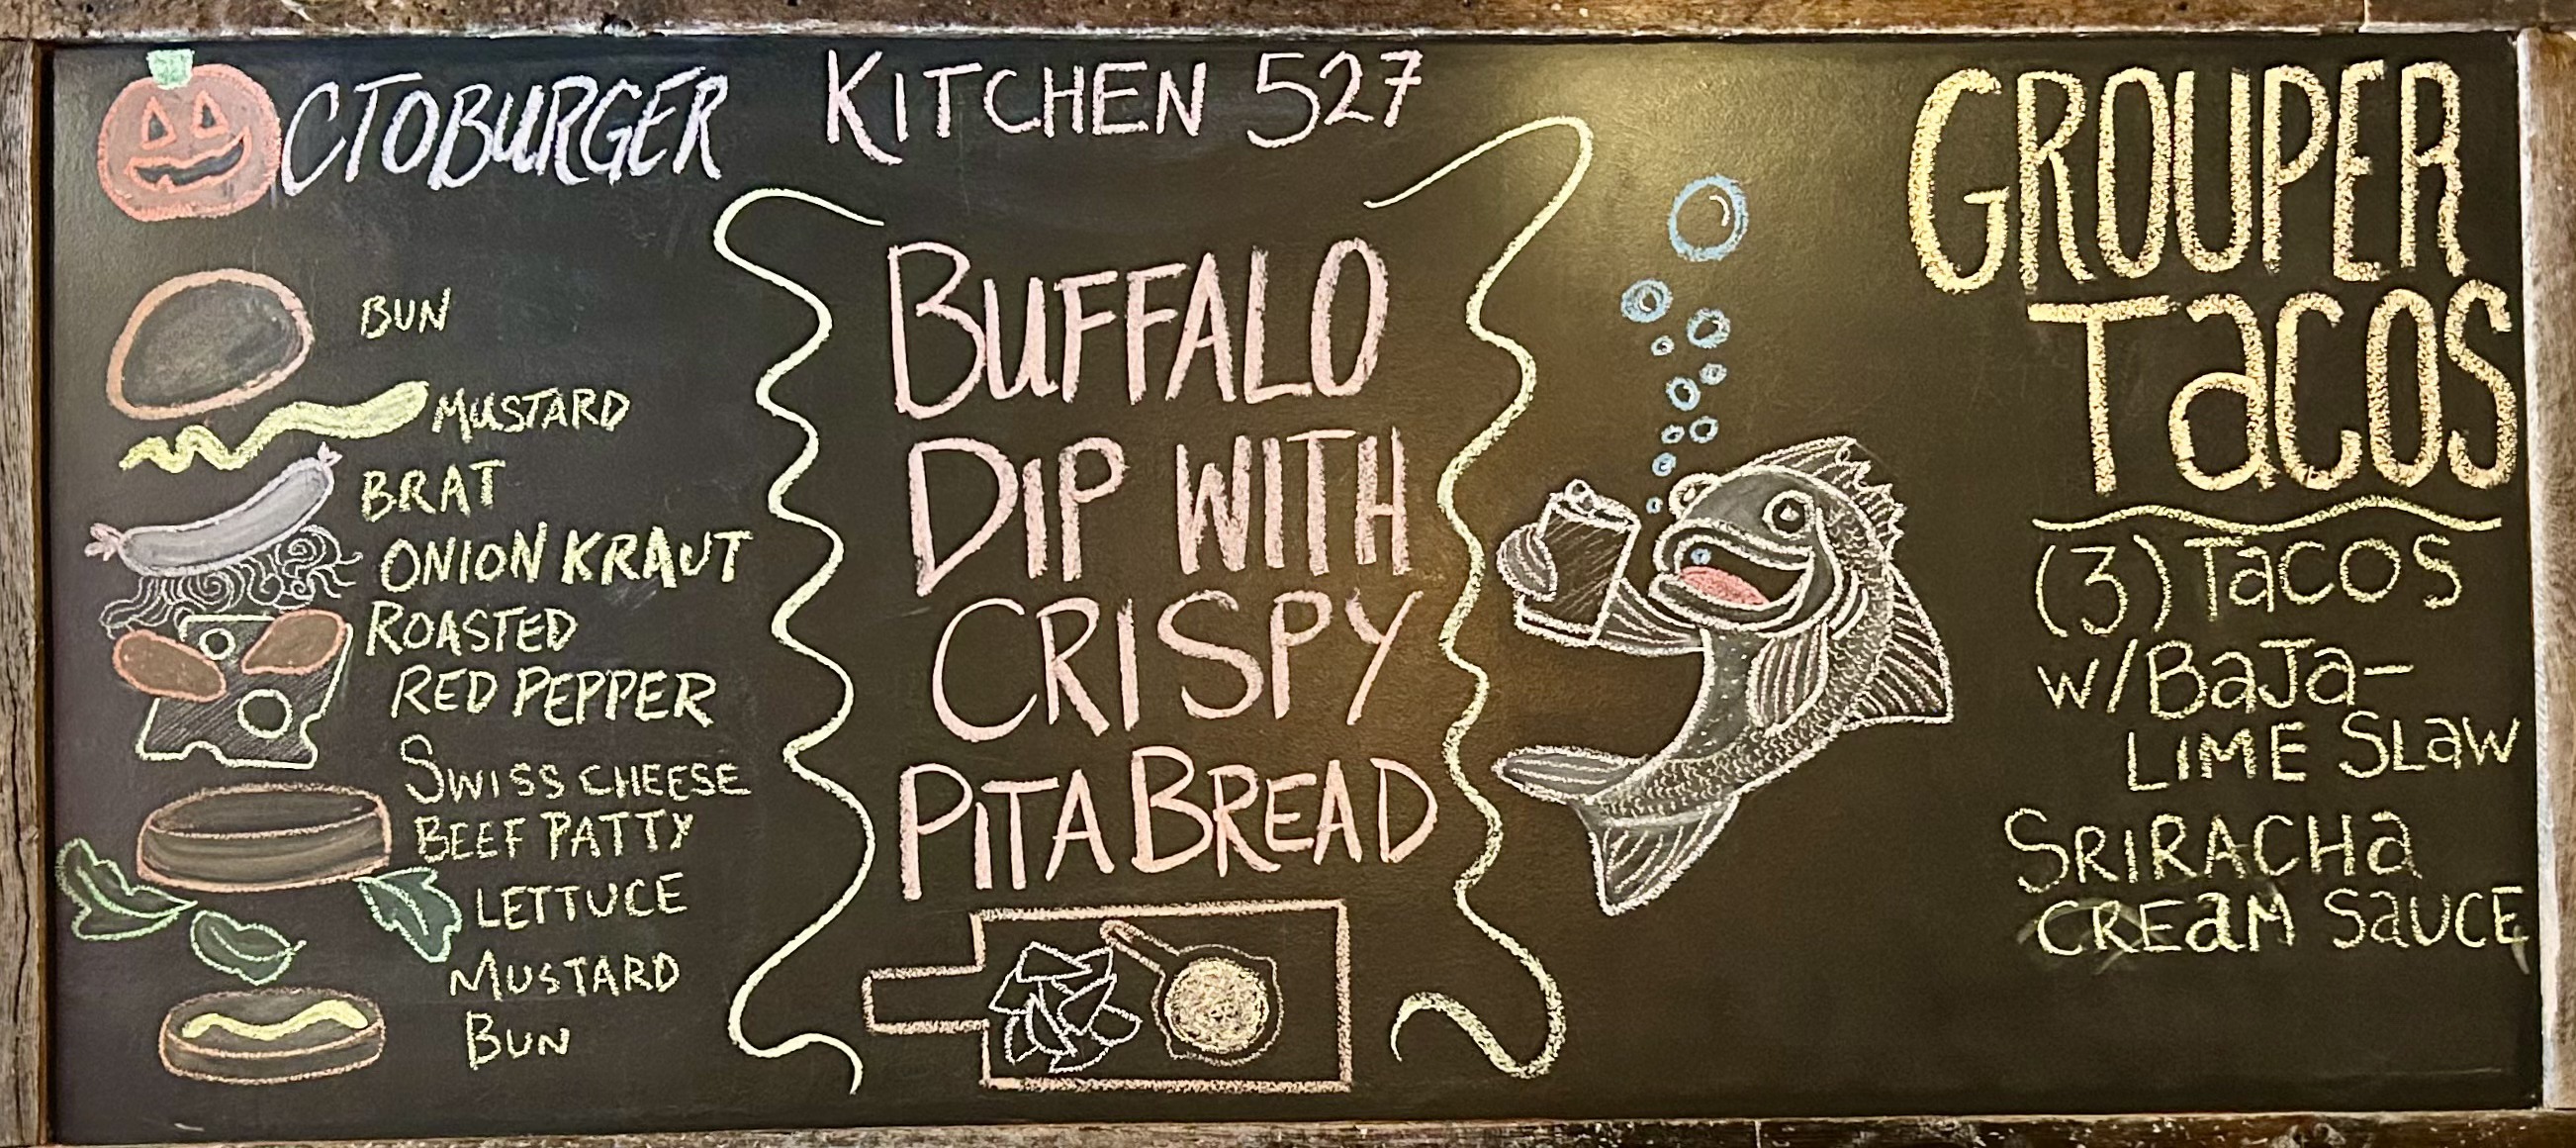 OCTOBURGER
BUN
MUSTARD
BRAT
ONION KRAUT
ROASTED
RED PEPPER
SWISS CHEESE
BEEF PATTY
LETTUCE
MUSTARD
BUN
KITCHEN 527
BUFFALO
DIP WITH
CRISPY
PITA BREAD
GROUPER
TaCOS
(3) TaCOS
w/BaJa-
LIME SLaW
SRIRACHa
CREaM SaUCE